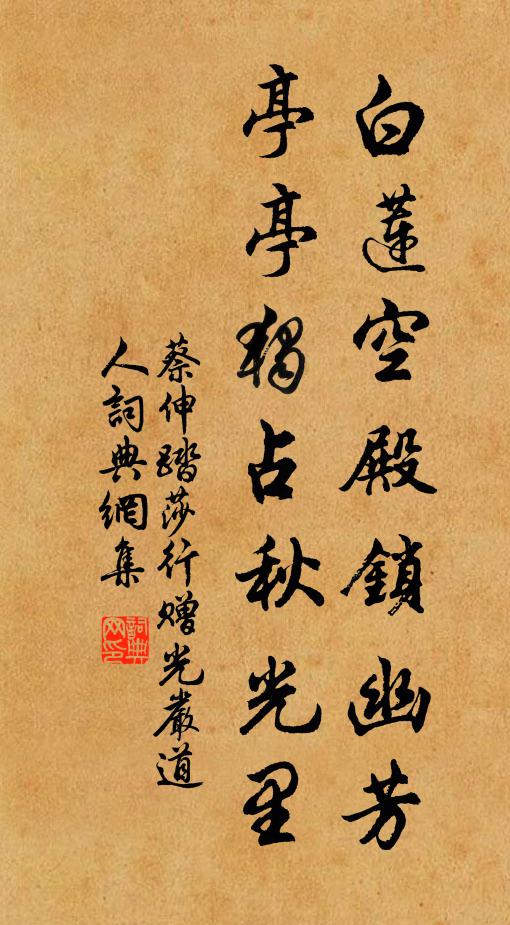 白蓮空殿鎖幽芳
亭亭獨占秋光里
蔡伸踏莎行贈光嚴道
人詞典網集
詞典網印